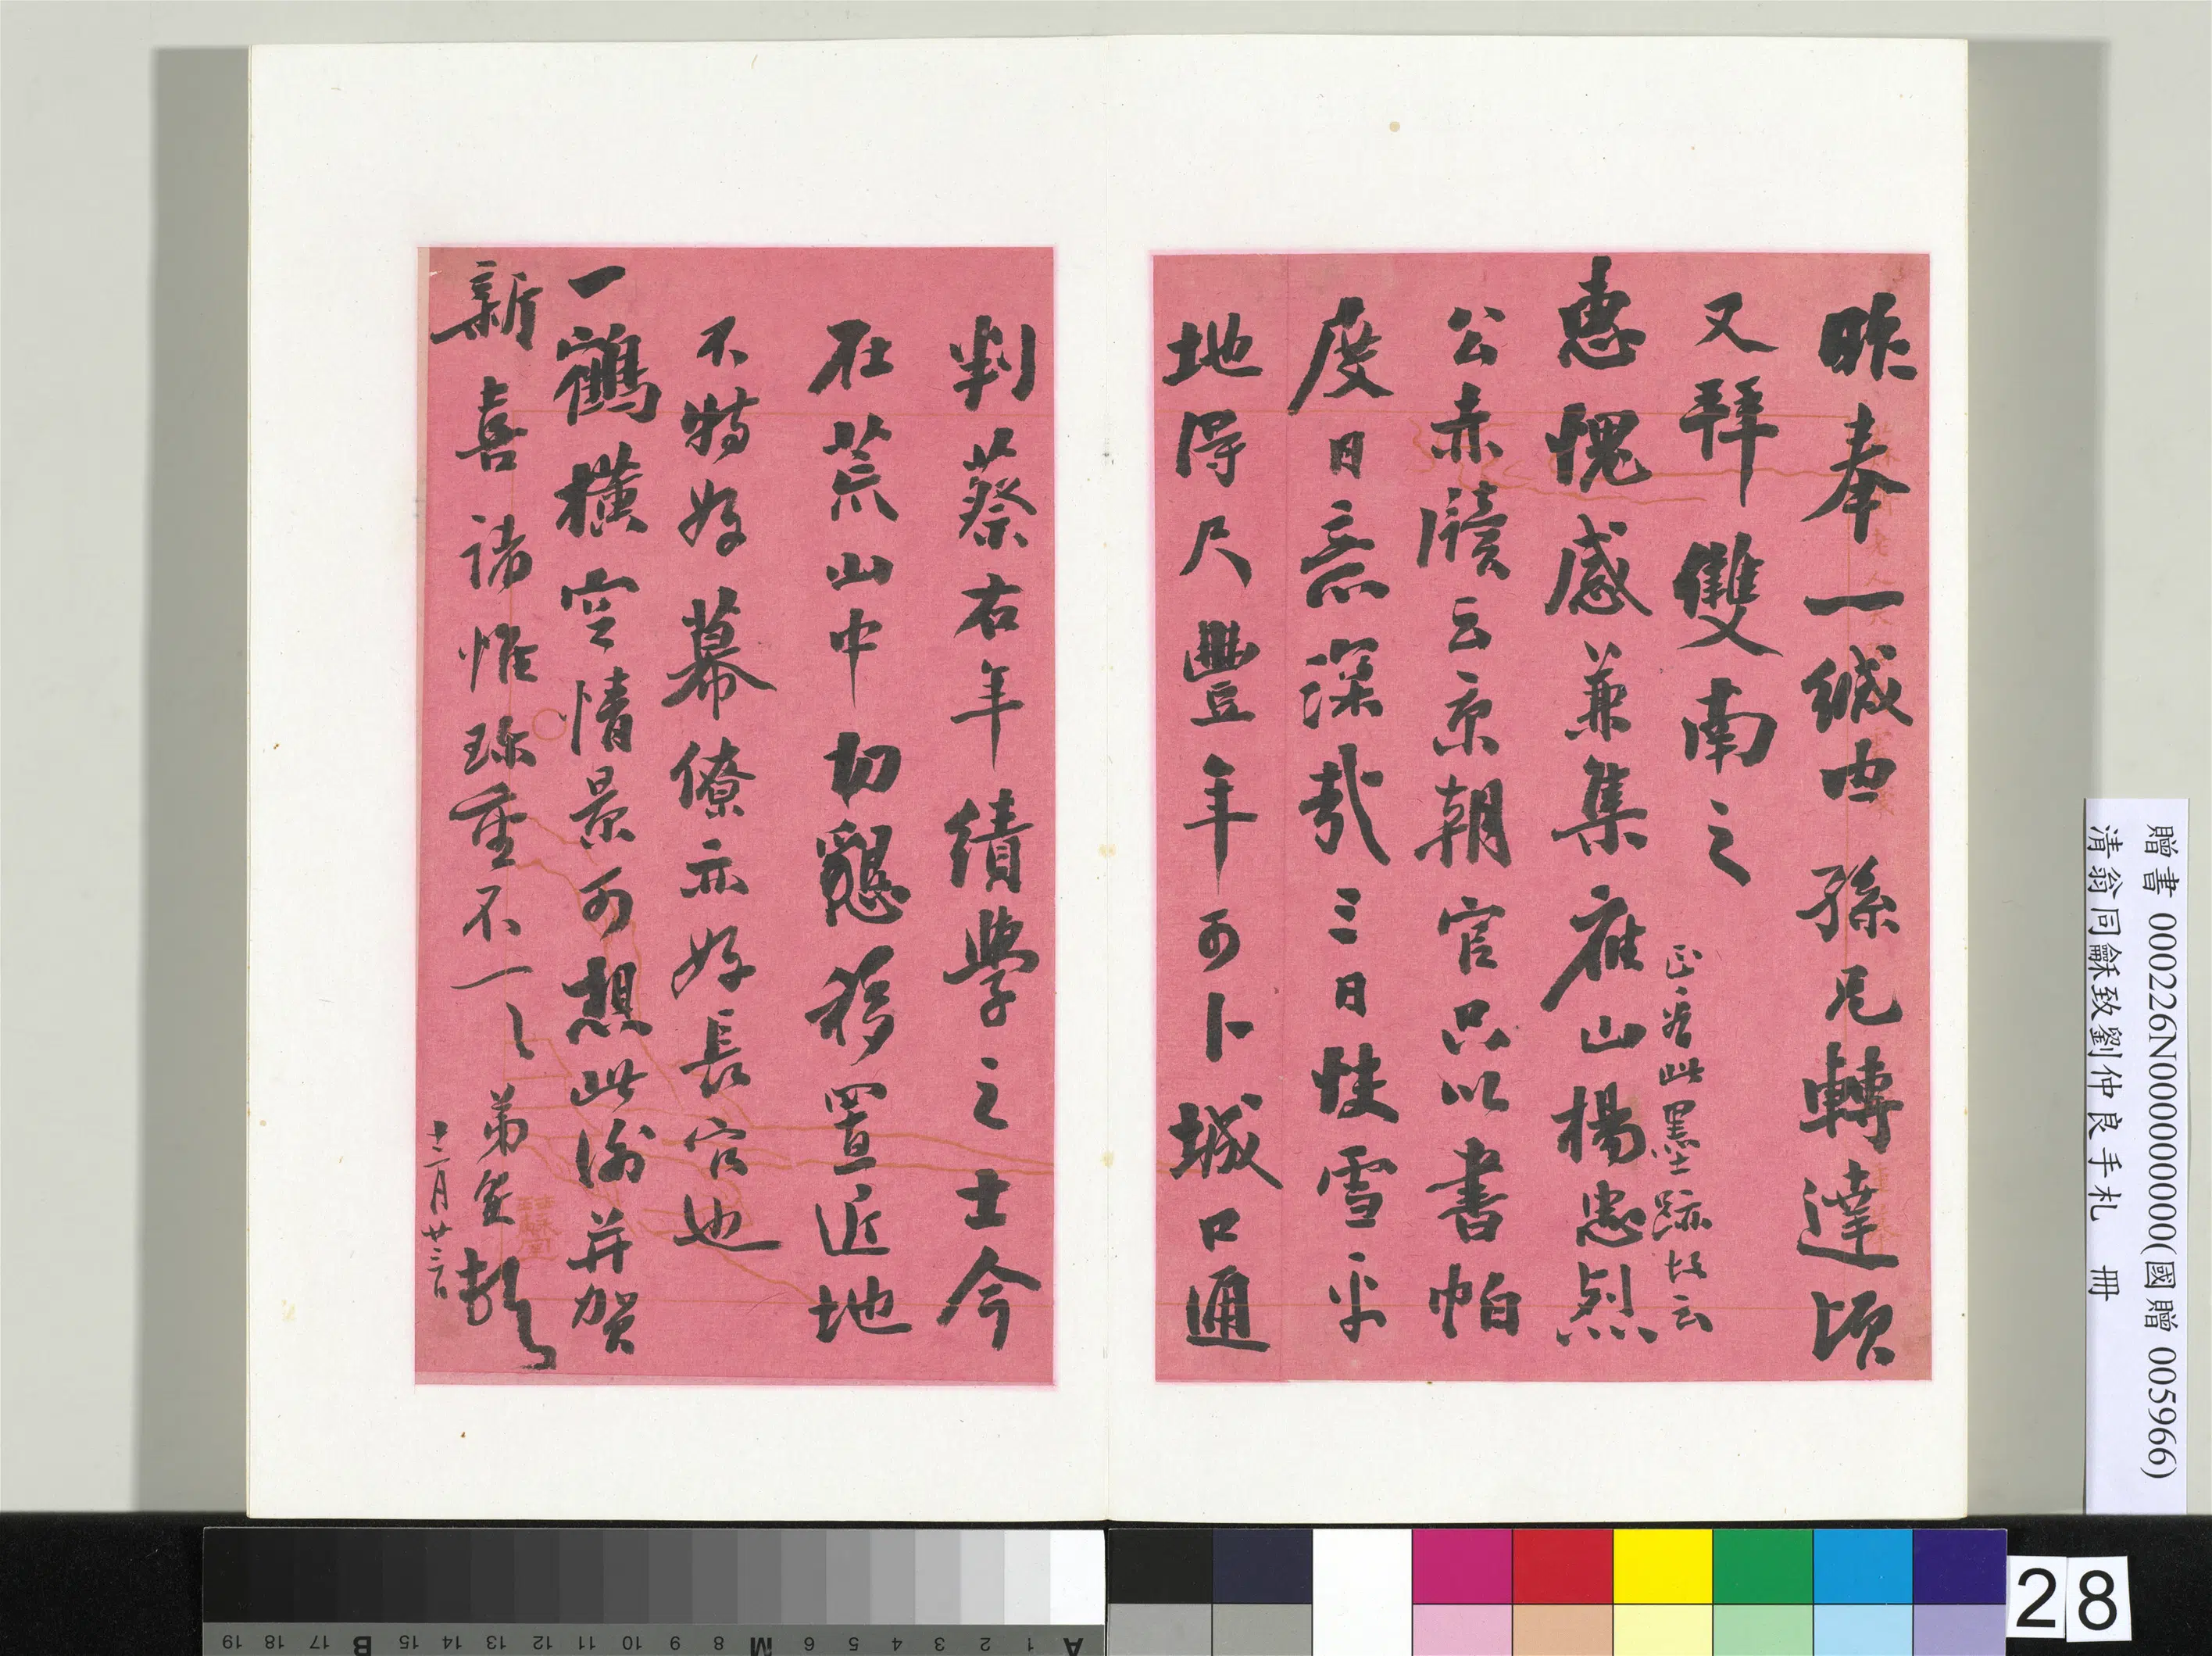 昨奉一緘由孫兄轉達頃
又拜雙南之
惠愧感兼集椒山楊忠烈
正覓此墨跡故云
公赤牘云京朝官只以書帕
度日意深哉三日快雪平
地得尺豐年可卜城口通
判蔡右年績學之士今
在荒山中切懇移置近地
不特好幕僚亦好長官也
一鶴橫空情景可想此謝并賀
新喜諸惟珍重不一一弟 頓
十二月廿三日
贈書 000226N000000000(國贈 005966)
清翁同龢致劉仲良手札 冊
28
A 1 2 3 4 5 6 M 8 9 10 11 12 13 14 15 B 17 18 19